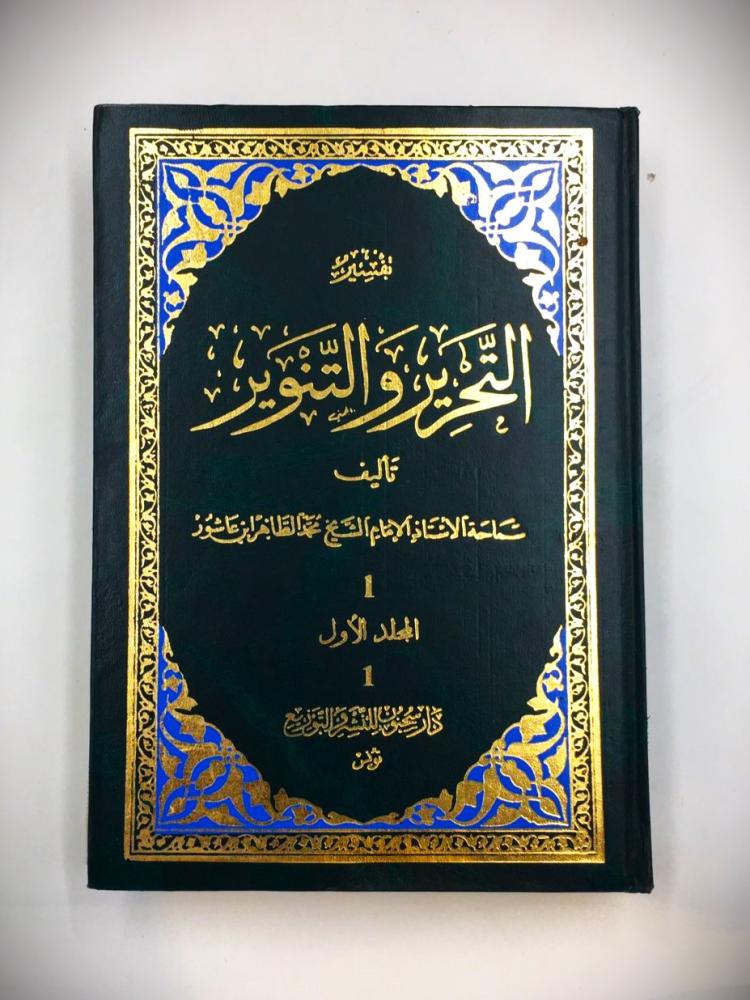 تفسير
التَّحْرِير وَالتَّنْوير
تأليف
سَمَاحَة الأستاذ الإمَام الشيخ محمّد الطاهر ابن عاشور
1
المجلد الأول
1
دار سحنون للنشر والتوزيع
تونس